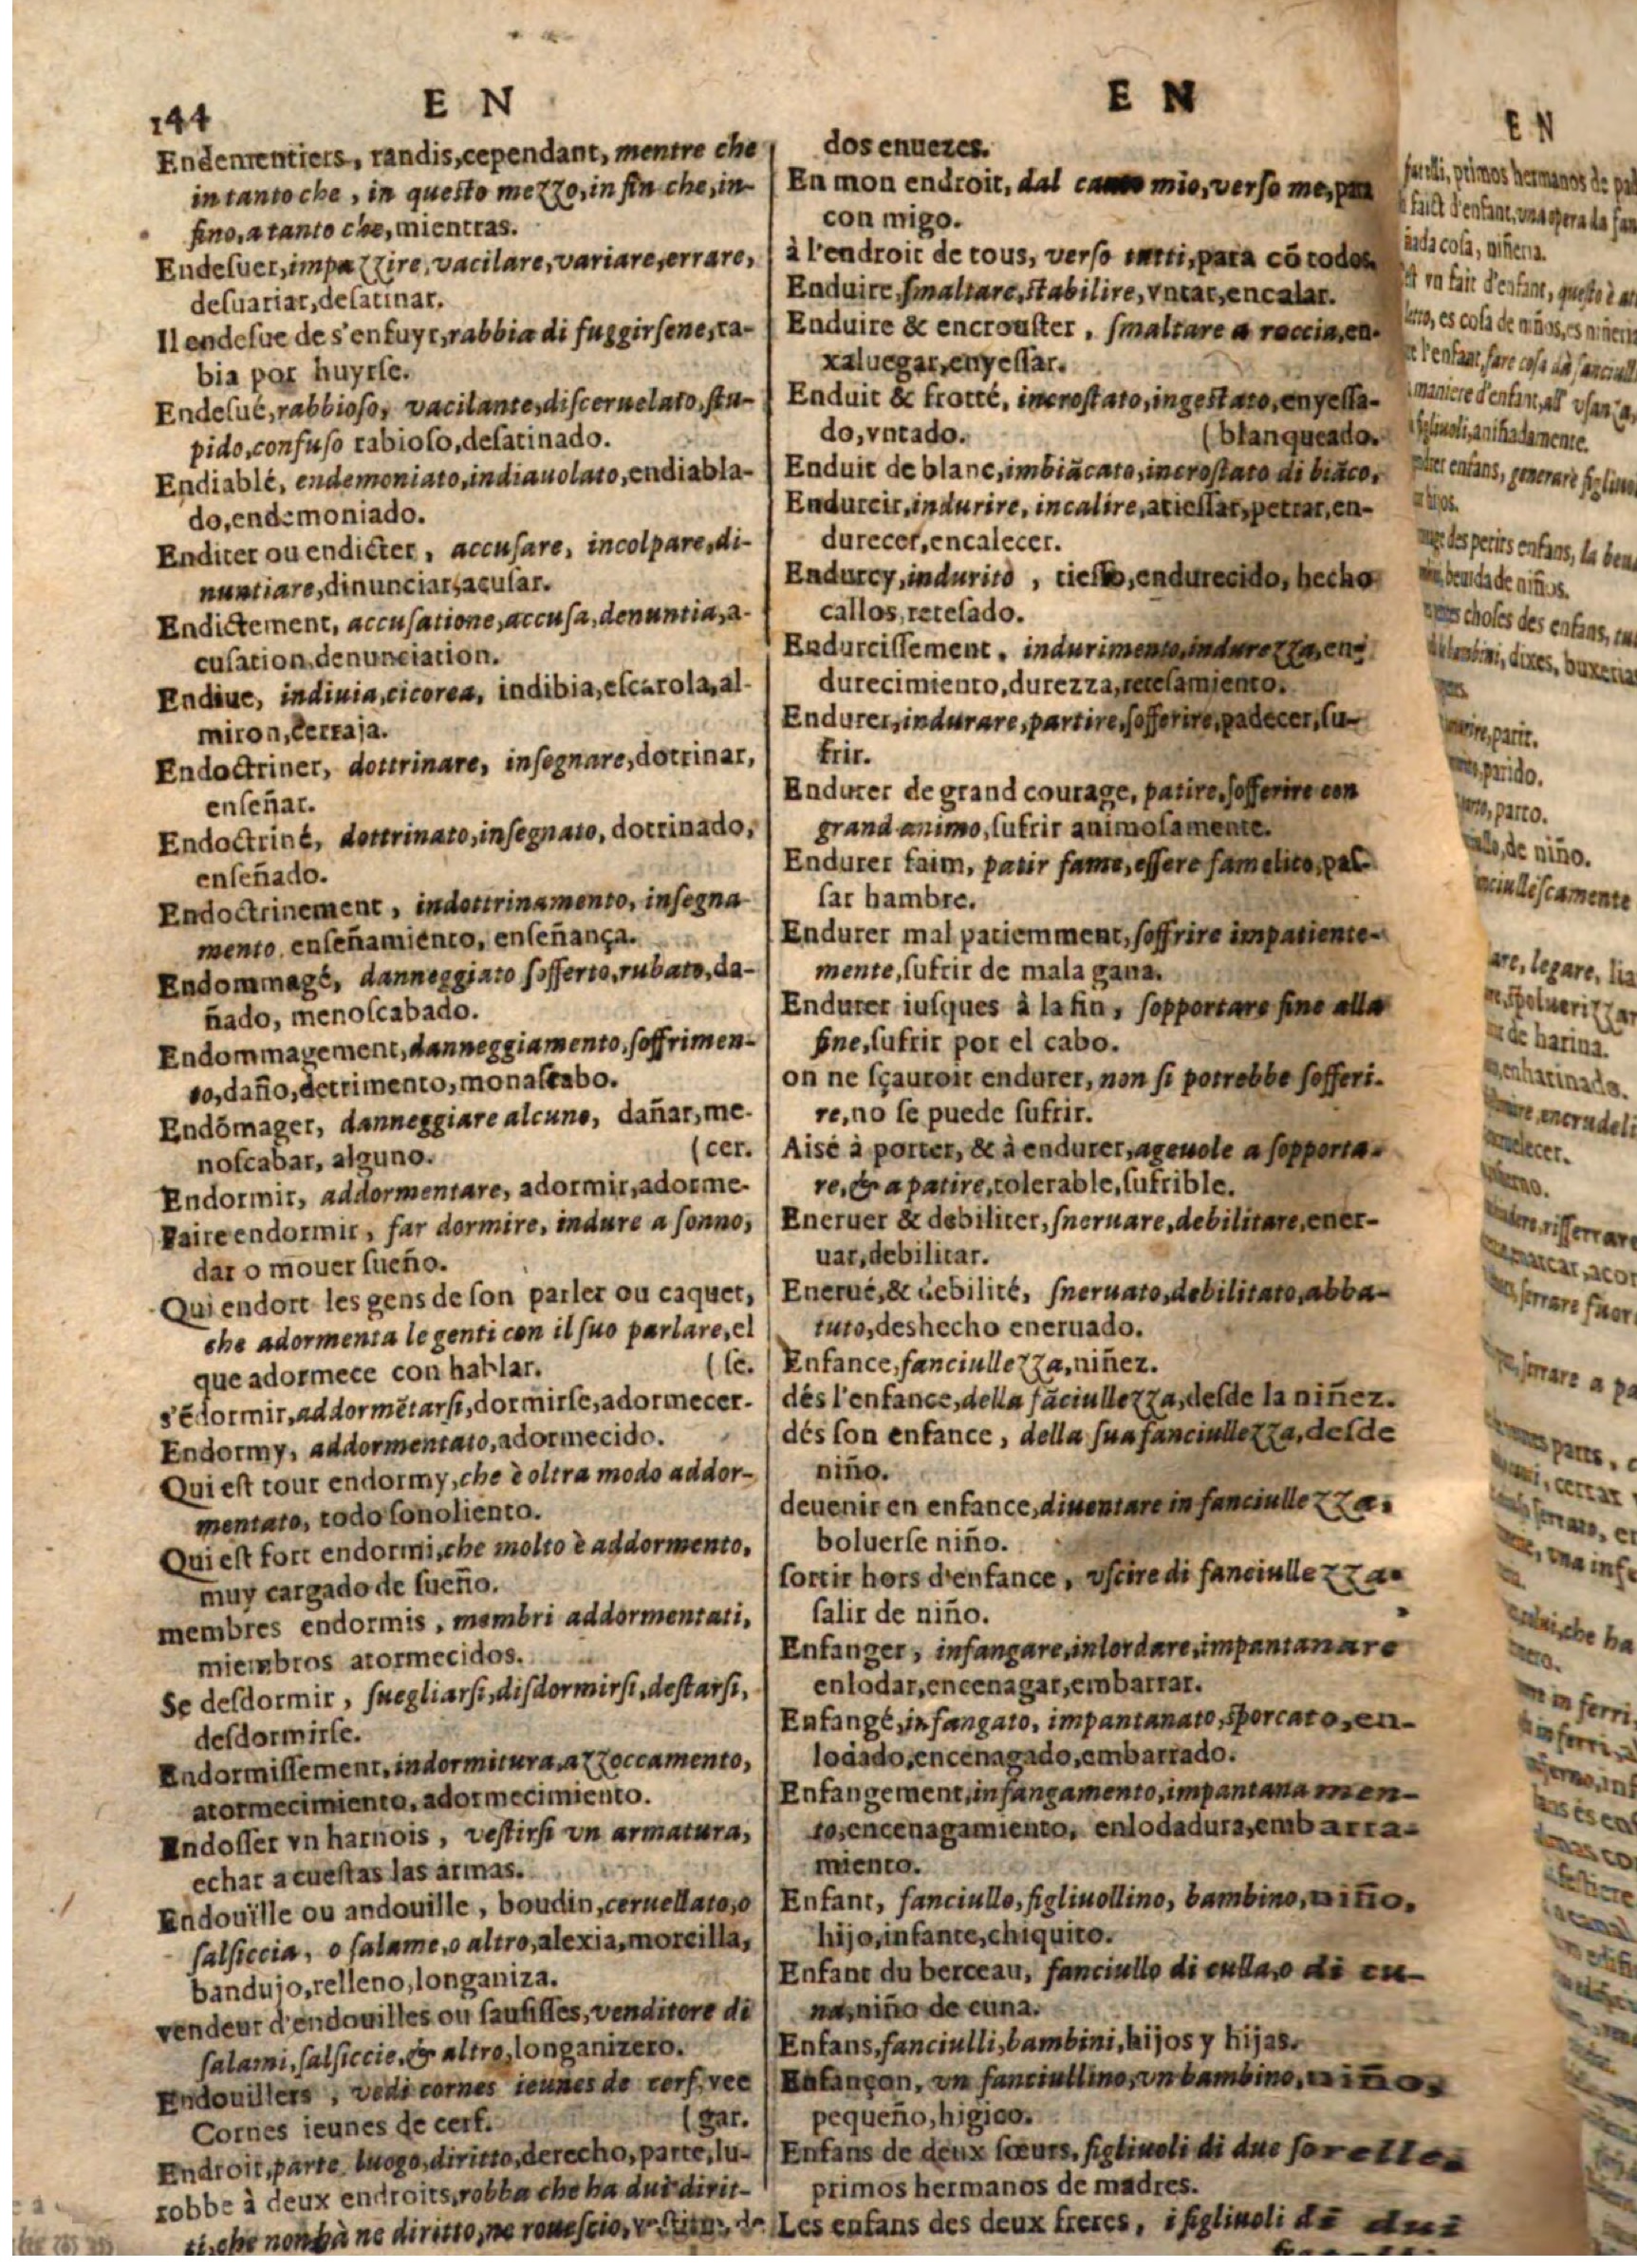 144
E N
Endementiers, randis,cependant, mentre che
in tanto che, in questo mezzo,in fin che,in-
fino,a tanto che,mientras.
Endesuer,impazzire,vacilare,variare,errare,
desuariar,desatinar.
Il endesue de s'enfuyr,rabbia di fuggirsene,ra-
bia por huyrse.
Endesué,rabbioso, vacilante,disceruelato,stu-
pido,confuso rabioso,desatinado.
Endiablé, endemoniato,indiauolato,endiabla-
do,endemoniado.
Enditer ou endicter, accusare, incolpare,di-
nuntiare,dinunciar,acusar.
Endictement, accusatione,accusa,denuntia,a-
cusation,denunciation.
Endiue, indiuia,cicorea, indibia,escarola,al-
miron,cerraja.
Endoctriner, dottrinare, insegnare,dotrinar,
enseñar.
Endoctriné, dottrinato,insegnato, dotrinado,
enseñado.
Endoctrinement, indottrinamento, insegna
mento, enseñamiento, enseñança.
Endommagé, danneggiato sofferto,rubato,da-
ñado, menoscabado.
Endommagement,danneggiamento,soffrimen-
to,daño,detrimento,monascabo.
Endõmager, danneggiare alcuno, dañar,me-
noscabar, alguno. (cer.
Endormir, addormentare, adormir,adorme-
Faire endormir, far dormire, indure a sonno,
dar o mouer sueño.
Qui endort les gens de son parler ou caquet,
che adormenta le genti con il suo parlare,el
que adormece con hablar. (se.
s'ẽdormir,addormẽtarsi,dormirse,adormecer-
Endormy, addormentato,adormecido.
Qui est tout endormy,che è oltra modo addor-
mentato, todo sonoliento.
Qui est fort endormi,che molto è addormento,
muy cargado de sueño.
membres endormis, membri addormentati,
miembros atormecidos.
Se desdormir, suegliarsi,disdormirsi,destarsi,
desdormirse.
Endormissement,indormitura,azzoccamento,
atormecimiento,adormecimiento.
Endosser vn harnois, vestirsi vn armatura,
echar a cuestas las armas.
Endouïlle ou andouille, boudin,ceruellato,o
salsiccia, o salame,o altro,alexia,morcilla,
bandujo,relleno,longaniza.
vendeur d'endouilles ou saufisses,venditore di
salami,salsiccie,& altro,longanizero.
Endouillers, vedi cornes ieunes de cerf, vee
Cornes ieunes de cerf. (gar.
Endroit,parte, luogo,diritto,derecho,parte,lu-
robbe à deux endroits,robba che ha dui dirit-
ti,che non hà ne diritto,ne rouescio,
E N
dos enuezes.
En mon endroit, dal canto mio,verso me,para
con migo.
à l'endroit de tous, verso tutti,para cõ todos.
Enduire,smaltare,stabilire,vntar,encalar.
Enduire & encrouster, smaltare a roccia,en-
xaluegar,enyessar.
Enduit & frotté, incrostato,ingestato,enyessa-
do,vntado. (blanqueado.
Enduit de blanc,imbiãcato,incrostato di biãco,
Endurcir,indurire, incalire,atiessar,petrar,en-
durecer,encalecer.
Endurcy,indurito, tiesso,endurecido, hecho
callos,retesado.
Endurcissement, indurimento,indurezza,en-
durecimiento,durezza,retesamiento.
Endurer,indurare,partire,sofferire,padecer,su-
frir.
Endurer de grand courage, patire,sofferire con
grand animo,sufrir animosamente.
Endurer faim, patir fame,essere famelico,pas-
sar hambre.
Endurer mal patiemment,soffrire impatiente-
mente,sufrir de mala gana.
Endurer iusques à la fin, sopportare fine alla
fine,sufrir por el cabo.
on ne sçauroit endurer, non si potrebbe sofferi-
re,no se puede sufrir.
Aisé à porter, & à endurer,ageuole a sopporta-
re,& a patire,tolerable,sufrible.
Eneruer & debiliter,sneruare,debilitare,ener-
uar,debilitar.
Enerué,& debilité, sneruato,debilitato,abba-
tuto,deshecho eneruado.
Enfance,fanciullezza,niñez.
dés l'enfance,della fãciullezza,desde la niñez.
dés son enfance, della sua fanciullezza,desde
niño.
deuenir en enfance,diuentare in fanciullezza,
boluerse niño.
sortir hors d'enfance, vscire di fanciullezza,
salir de niño.
Enfanger, infangare,inlordare,impantanare
enlodar,encenagar,embarrar.
Enfangé,infangato, impantanato,sporcato,en-
lodado,encenagado,embarrado.
Enfangement,infangamento,impantanamen-
to,encenagamiento, enlodadura,embarra-
miento.
Enfant, fanciullo,figliuollino, bambino,niño,
hijo,infante,chiquito.
Enfant du berceau, fanciullo di culla,o di cu-
na,niño de cuna.
Enfans,fanciulli,bambini,hijos y hijas.
Enfançon, vn fanciullino,vn bambino,niño,
pequeño,higico.
Enfans de deux sœurs, figliuoli di due sorelle,
primos hermanos de madres.
Les enfans des deux freres, i figliuoli di dui
E N
primos hermanos de
faict d'enfant,vna opera da
cosa, niñeria.
vn fait d'enfant, questo è
es cosa de niños,es niñeria
l'enfant,fare cosa da
maniere d'enfant,all' vsanza,
aniñadamente.
enfans, generare
hijos.
des petits enfans, la
de niños.
choses des enfans,
dixes,
parir.
parido.
parto.
de niño.
legare,
de harina.
enharinado.
rifferrare
serrare
serrare a
parts,
cerrar
ferrato,
che ha
in ferri,